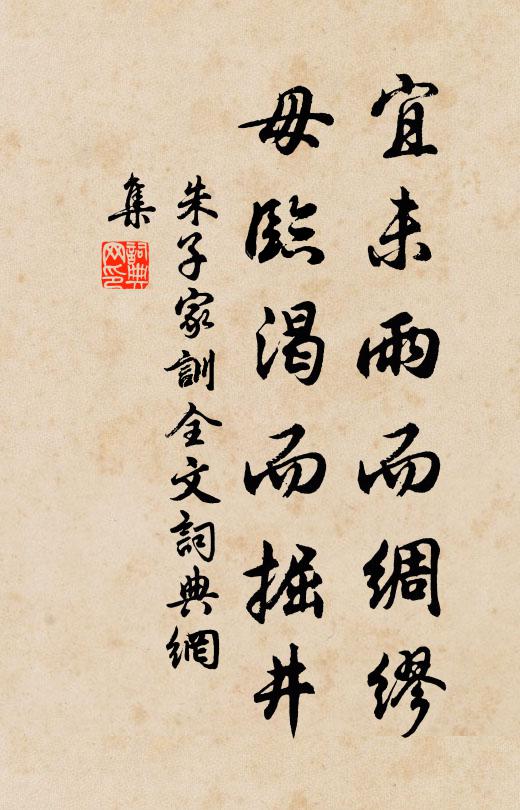 宜未雨而綢繆
毋臨渴而掘井
朱子家訓全文詞典網
集
詞典网印